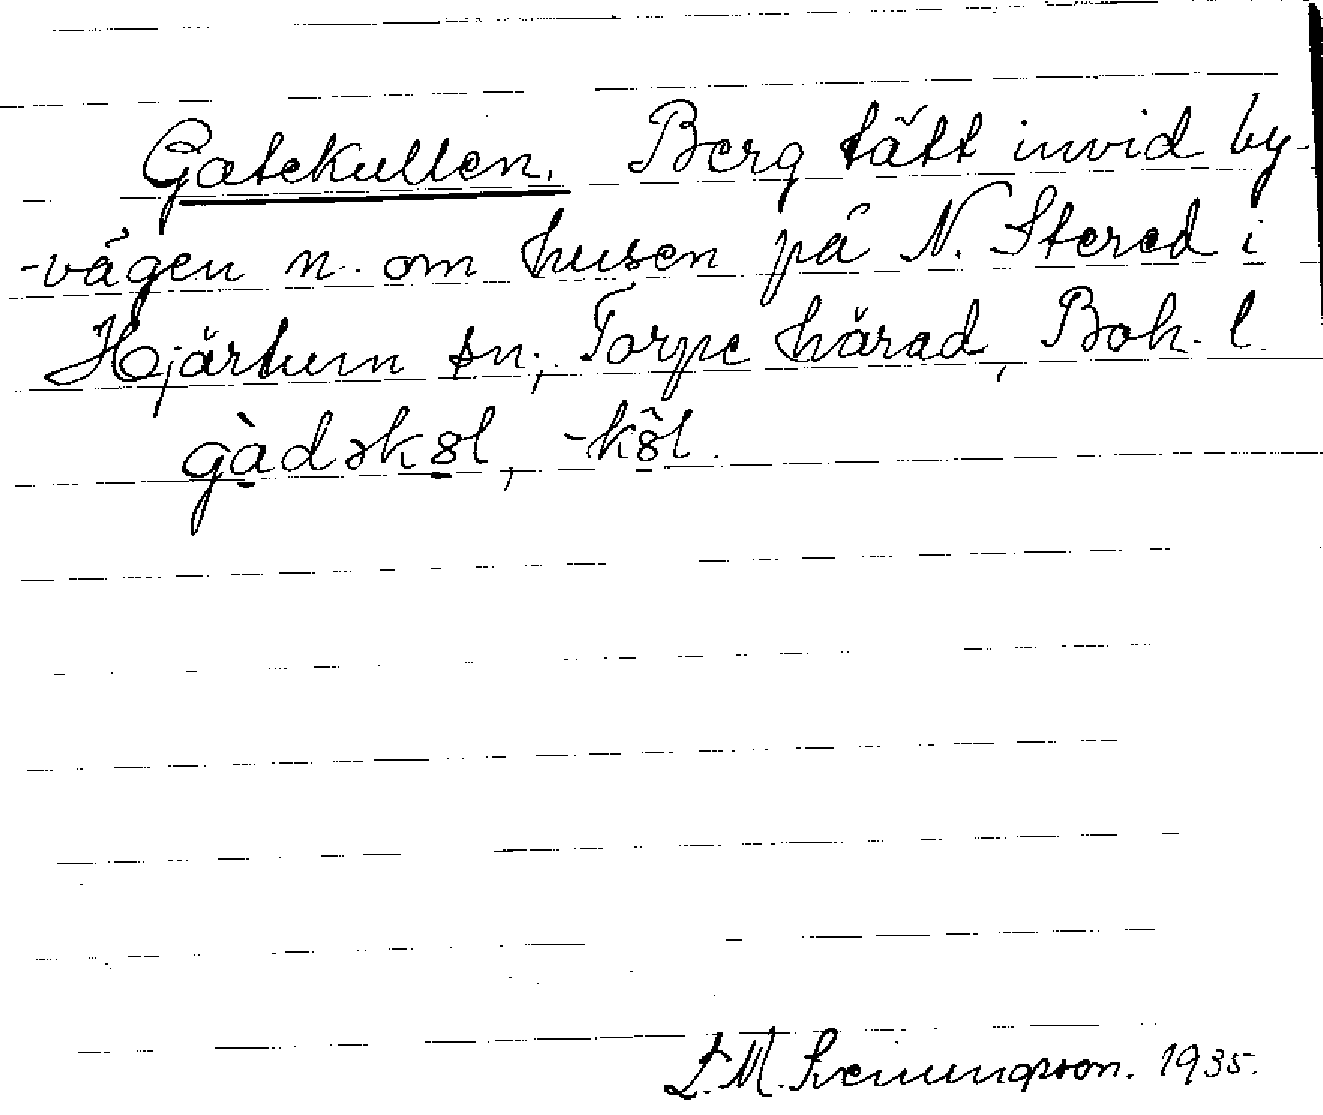 Gatekullen. Berg tätt invid by-
-vägen n. om husen på N. Stered i
Hjärtum sn; Torpe härad, Boh. l
gàdək8l, -k8̀l.
L. M. Svenungsson. 1935.